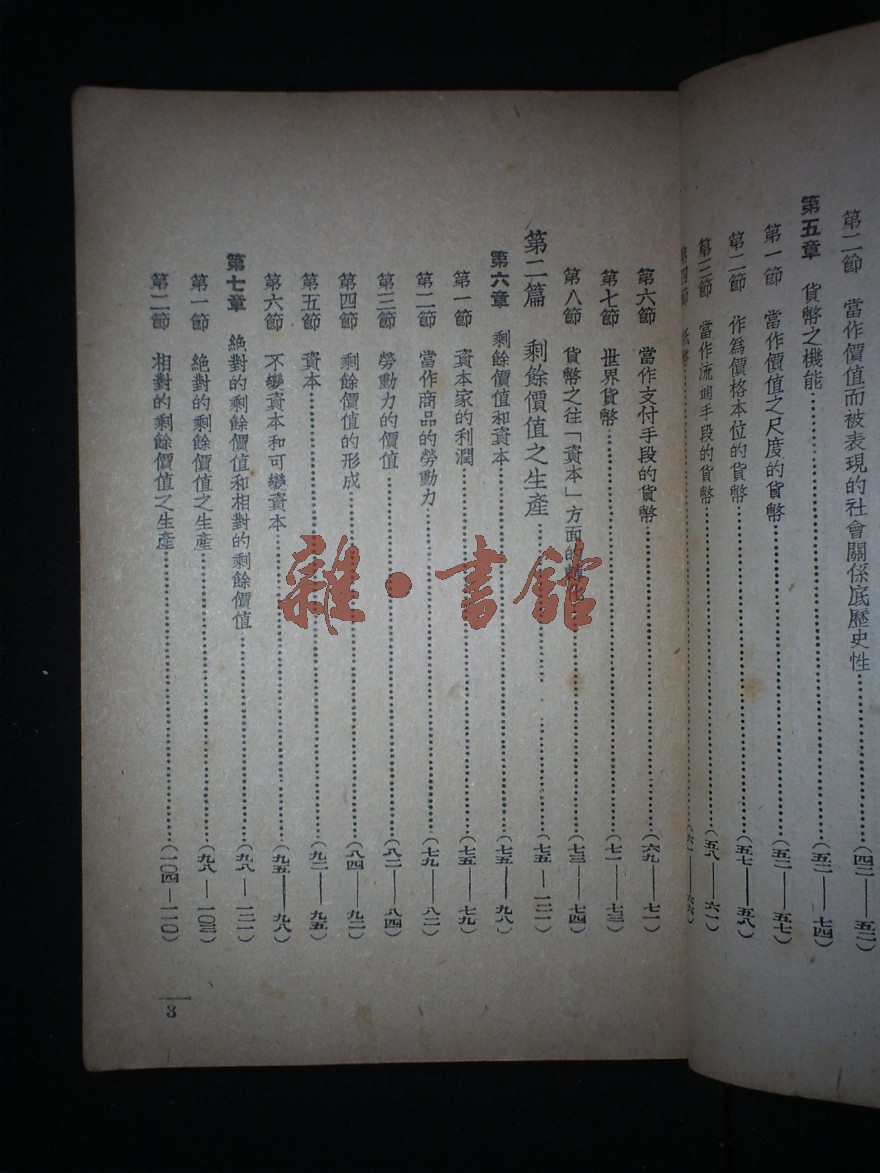 第二節　當作價值而被表現的社會關係底歷史性……（四二——五二）
第五章　貨幣之機能……（五二——七四）
第一節　當作價值之尺度的貨幣……（五二——五七）
第二節　作為價格本位的貨幣……（五七——五八）
第三節　當作流通手段的貨幣……（五八——六一）
第四節　紙幣……（六一——六六）
第六節　當作支付手段的貨幣……（六九——七一）
第七節　世界貨幣……（七一——七三）
第八節　貨幣之往「資本」方面的……（七三——七四）
第二篇　剩餘價值之生產……（七五——一二一）
第六章　剩餘價值和資本……（七五——九八）
第一節　資本家的利潤……（七五——七九）
第二節　當作商品的勞動力……（七九——八二）
第三節　勞動力的價值……（八二——八四）
第四節　剩餘價值的形成……（八四——九二）
第五節　資本……（九二——九五）
第六節　不變資本和可變資本……（九五——九八）
第七章　絕對的剩餘價值和相對的剩餘價值……（九八——一二一）
第一節　絕對的剩餘價值之生產……（九八——一〇三）
第二節　相對的剩餘價值之生產……（一〇四——一一〇）
3
雜·書舘